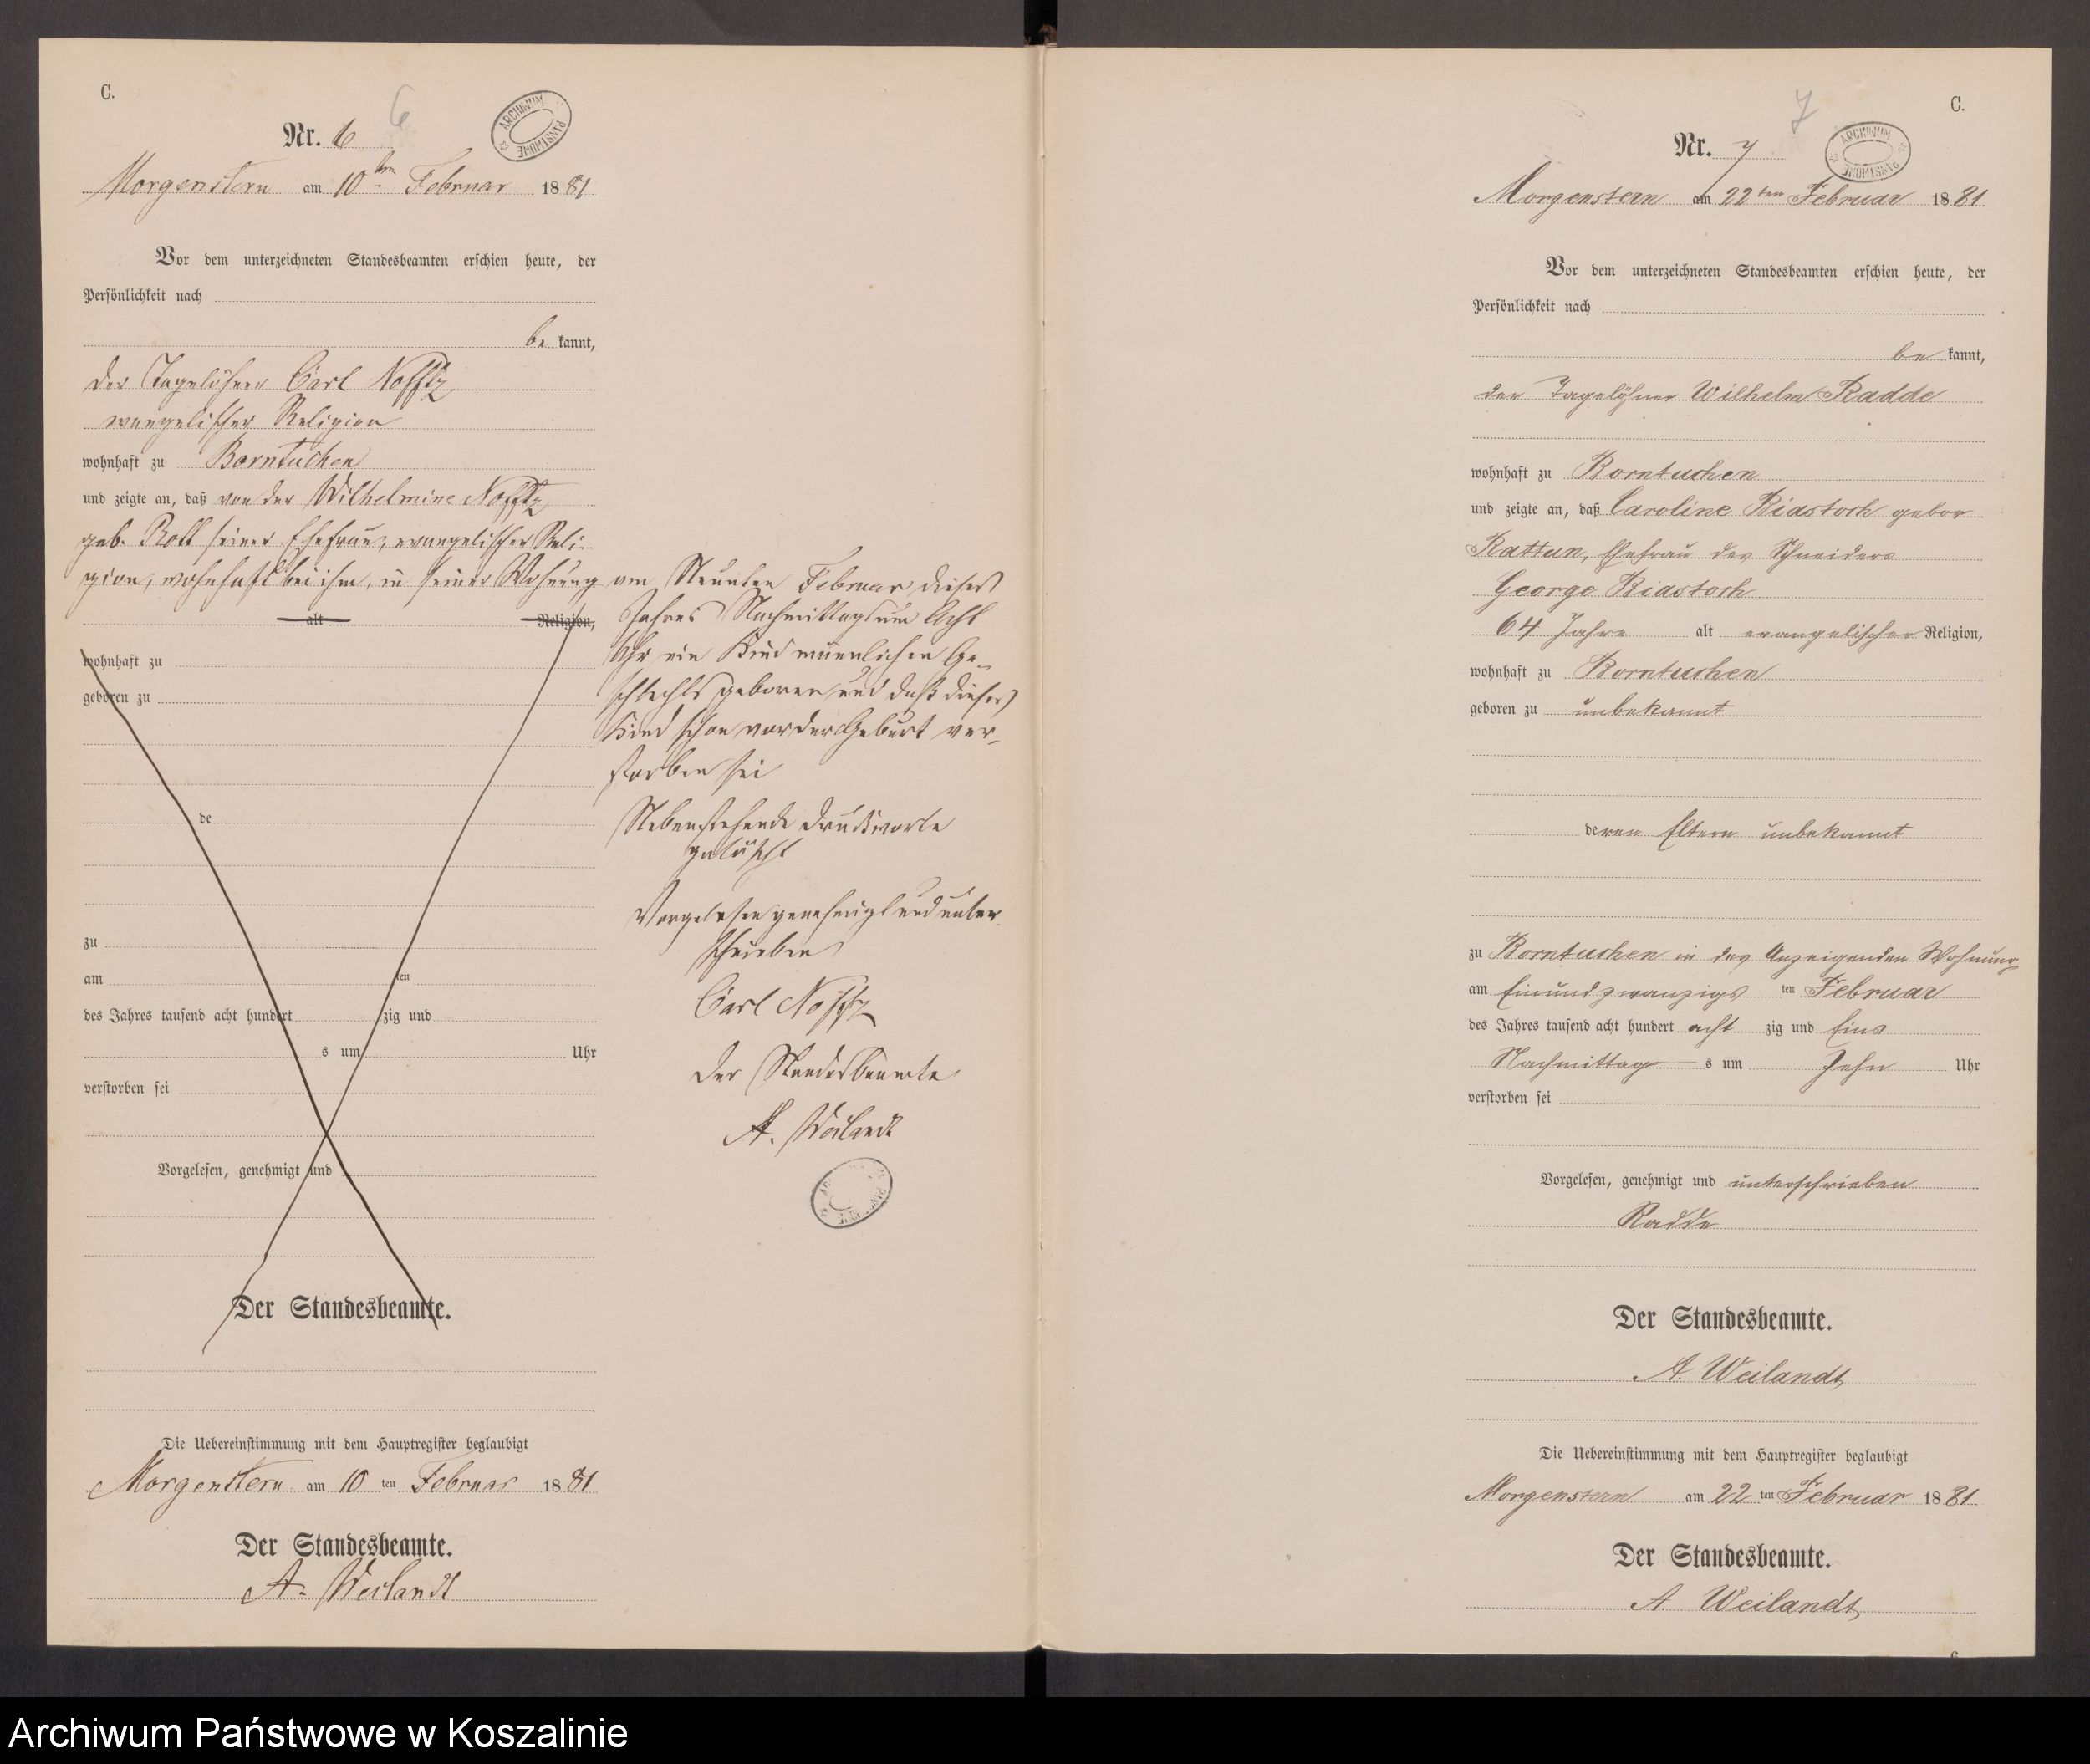 C.
6
Nr. 6
ARCHIWUM PAŃSTWOWE
Morgenstern am 10ten Februar 1881
Vor dem unterzeichneten Standesbeamten erschien heute, der
Persönlichkeit nach
be kannt,
der Tagelöhner Carl Nofftz
evangelischer Religion
wohnhaft zu Borntuchen
und zeigte an, daß von der Wilhelmine Nofftz
geb. Roll seiner Ehefrau, evangelischer Reli-
gion, wohnhaft bei ihm, in seiner Wohnung am Neunten Februar dieses
alt Religion,
Jahres Nachmittags um Acht
Uhr ein Kind männlichen Ge-
schlechts geboren und daß dieses
Kind schon vor der Geburt ver-
storben sei
Nebenstehende Druckworte
gelöscht
Vorgelesen genehmigt und unter
schrieben
Carl Nofftz
Der Standesbeamte
A. Weilandt
wohnhaft zu
geboren zu
de
zu
am ten
des Jahres tausend acht hundert zig und
s um Uhr
verstorben sei
Vorgelesen, genehmigt und
Der Standesbeamte.
Die Uebereinstimmung mit dem Hauptregister beglaubigt
Morgenstern am 10 ten Februar 1881
Der Standesbeamte.
A. Weilandt
C.
7
Nr. 7
ARCHIWUM PAŃSTWOWE
Morgenstern am 22ten Februar 1881
Vor dem unterzeichneten Standesbeamten erschien heute, der
Persönlichkeit nach
be kannt,
der Tagelöhner Wilhelm Radde
wohnhaft zu Borntuchen
und zeigte an, daß Caroline Riastoch gebor
Rattun, Ehefrau des Schneiders
George Riastoch
64 Jahre alt evangelischer Religion,
wohnhaft zu Borntuchen
geboren zu unbekannt
deren Eltern unbekannt
zu Borntuchen in des Anzeigenden Wohnung
am Einundzwanzigs ten Februar
des Jahres tausend acht hundert acht zig und Eins
Nachmittag s um Zehn Uhr
verstorben sei
Vorgelesen, genehmigt und unterschrieben
Radde
Der Standesbeamte.
A. Weilandt
Die Uebereinstimmung mit dem Hauptregister beglaubigt
Morgenstern am 22 ten Februar 1881
Der Standesbeamte.
A. Weilandt
Archiwum Państwowe w Koszalinie